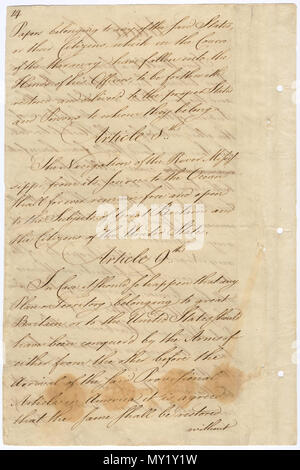 14
Papers belonging to any of the said States,
or their Citizens, which in the Course
of the War may have fallen into the
Hands of his Officers, to be forthwith
restored and deliver'd to the proper States
and Persons to whom they belong.
Article 8th
The Navigation of the River Missis
sippi, from its Source to the Ocean
shall for ever remain free and open
to the Subjects of Great Britain and
the Citizens of the United States.
Article 9th
In Case it should so happen that any
Place or Territory belonging to great
Britain or to the United States, should
have been conquer'd by the Arms of
either from the other before the
Arrival of the said Provisional
Articles in America, it is agreed
that the same shall be restored
without
alamy
Image ID: MY1Y1W
www.alamy.com